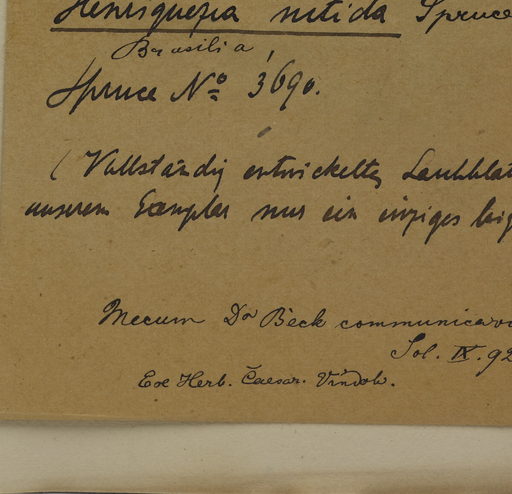 Henriquezia nitida Spruce
Brasilia
Spruce Nº 3690.
(Vollständig entwickeltes Laubblat
unserem Exemplar nur ein einziges
Mecum Dr Beck communicavi
Sol. IX. 92
Exe Herb. Caesar. Vindob.